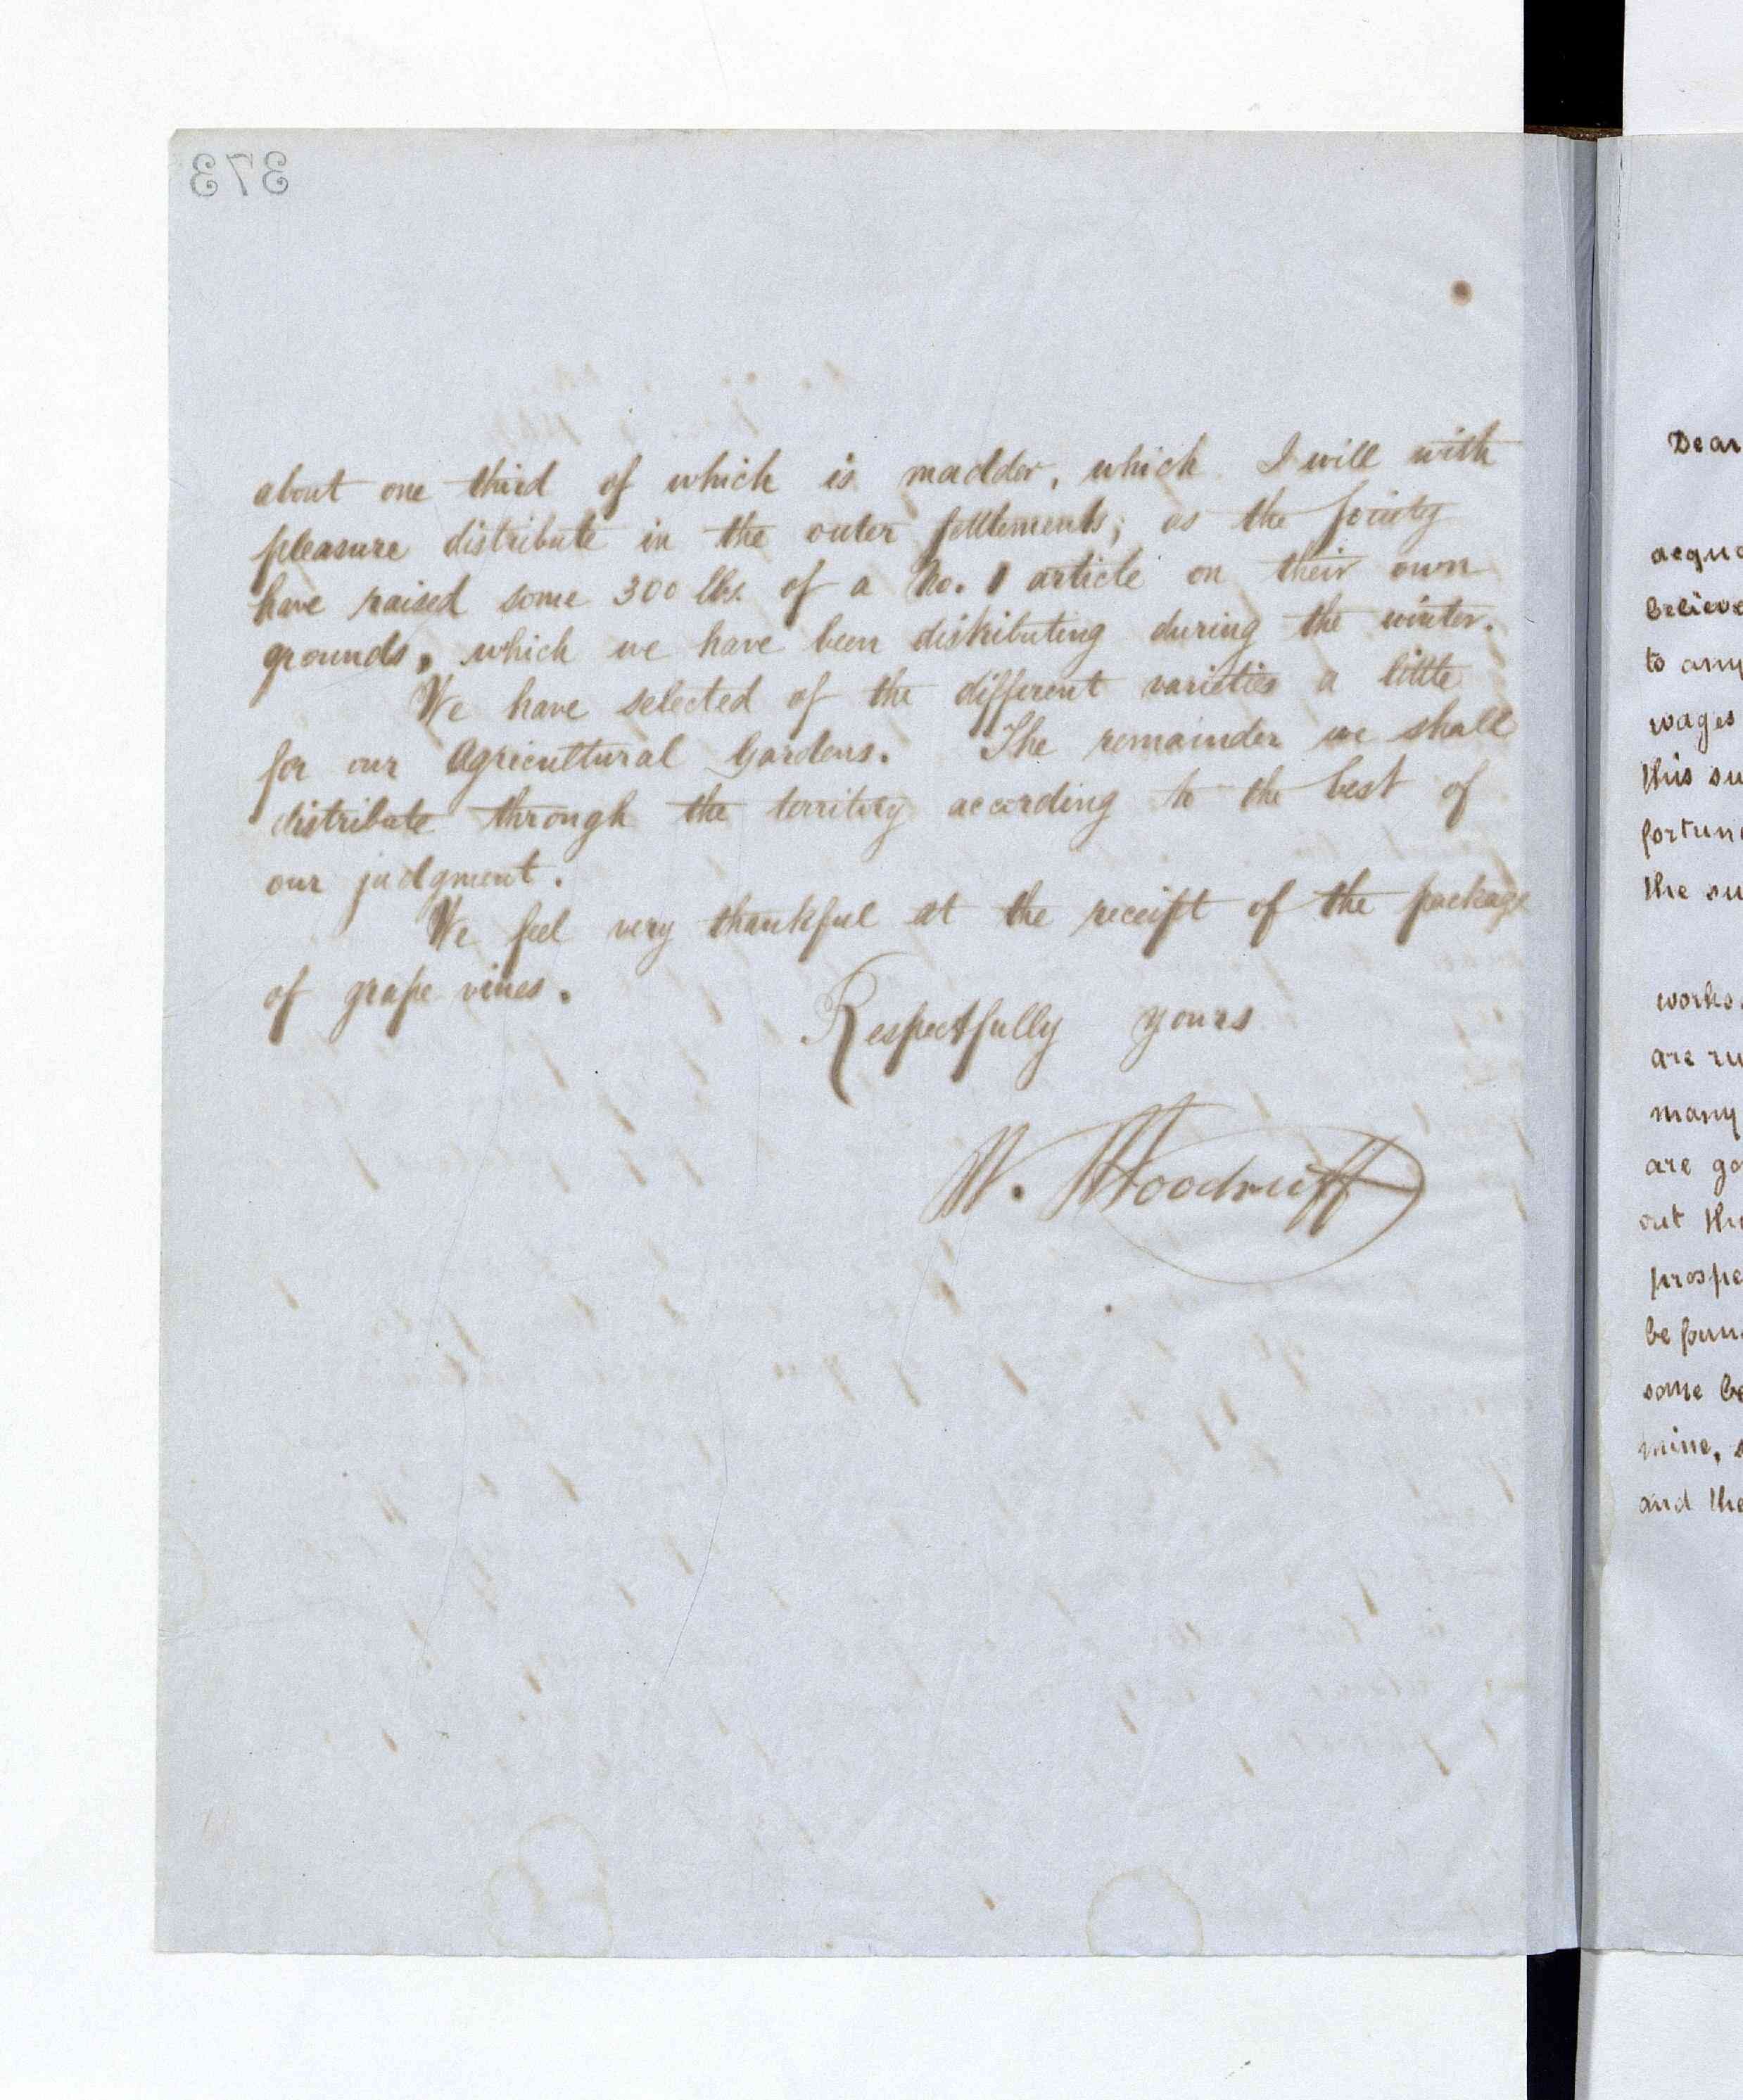 373
about one third of which is madder, which I will with
pleasure distribute in the outer settlements; as the society
have raised some 300 lbs. of a No. 1 article on their own
grounds, which we have been distributing during the winter.
We have selected of the different varieties a little
for our Agricultural Gardens. The remainder we shall
distribute through the territory according to the best of
our judgment.
We feel very thankful at the receipt of the package
of grape vines.
Respectfully yours
W. Woodruff
Dear
believe
to any
wages
this
the
works
are
many
are
out
be
some
mine,
and the